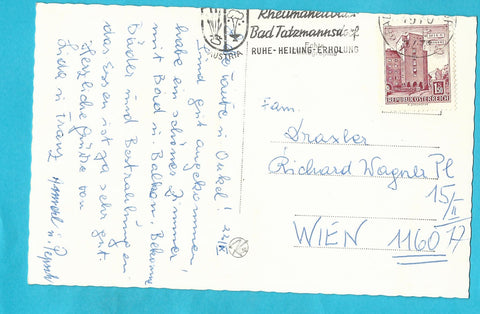 Rheumaheilbad
Bad Tatzmannsdorf
RUHE-HEILUNG-ERHOLUNG
AUSTRIA
1970
REPUBLIK ÖSTERREICH
Tante u. Onkel! 22/IX
sind gut angekommen,
habe ein schönes Zimmer
mit Bad u. Balkon. Bekomme
Bäder und Bestrahlung en
das Essen ist ja sehr gut.
Herzliche Grüße von
Franz
Fam.
Draxler
Richard Wagner Pl
15/II
WIEN 1160 A